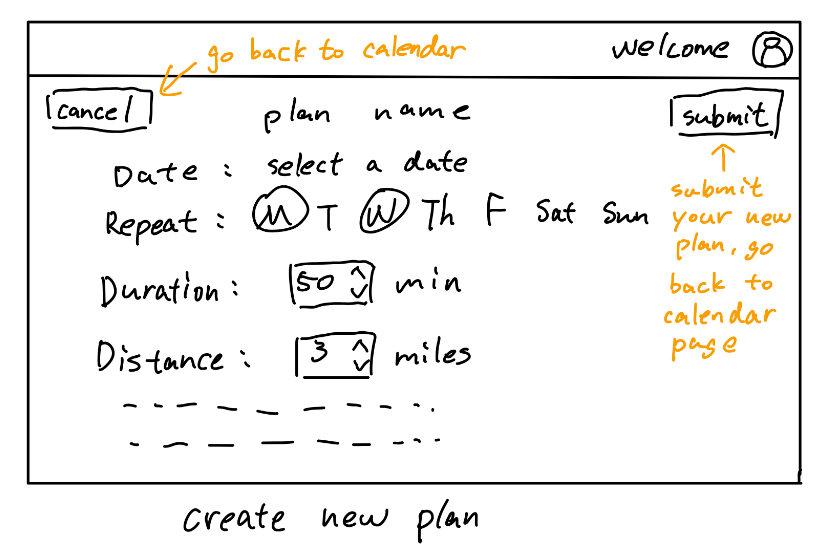 go back to calendar
welcome
cancel
plan name
submit
Date : select a date
submit
your new
plan, go
back to
calendar
page
Repeat : M T W Th F Sat Sun
Duration : 50 min
Distance : 3 miles
create new plan